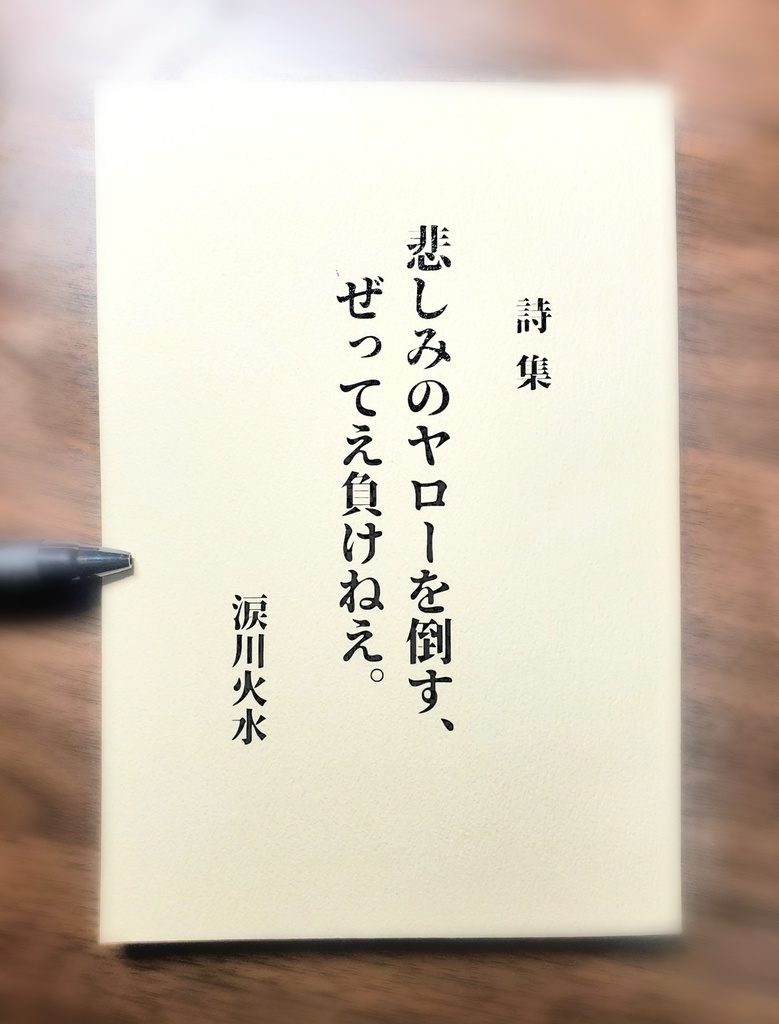 詩集
悲しみのヤローを倒す、
ぜってえ負けねえ。
涙川火水